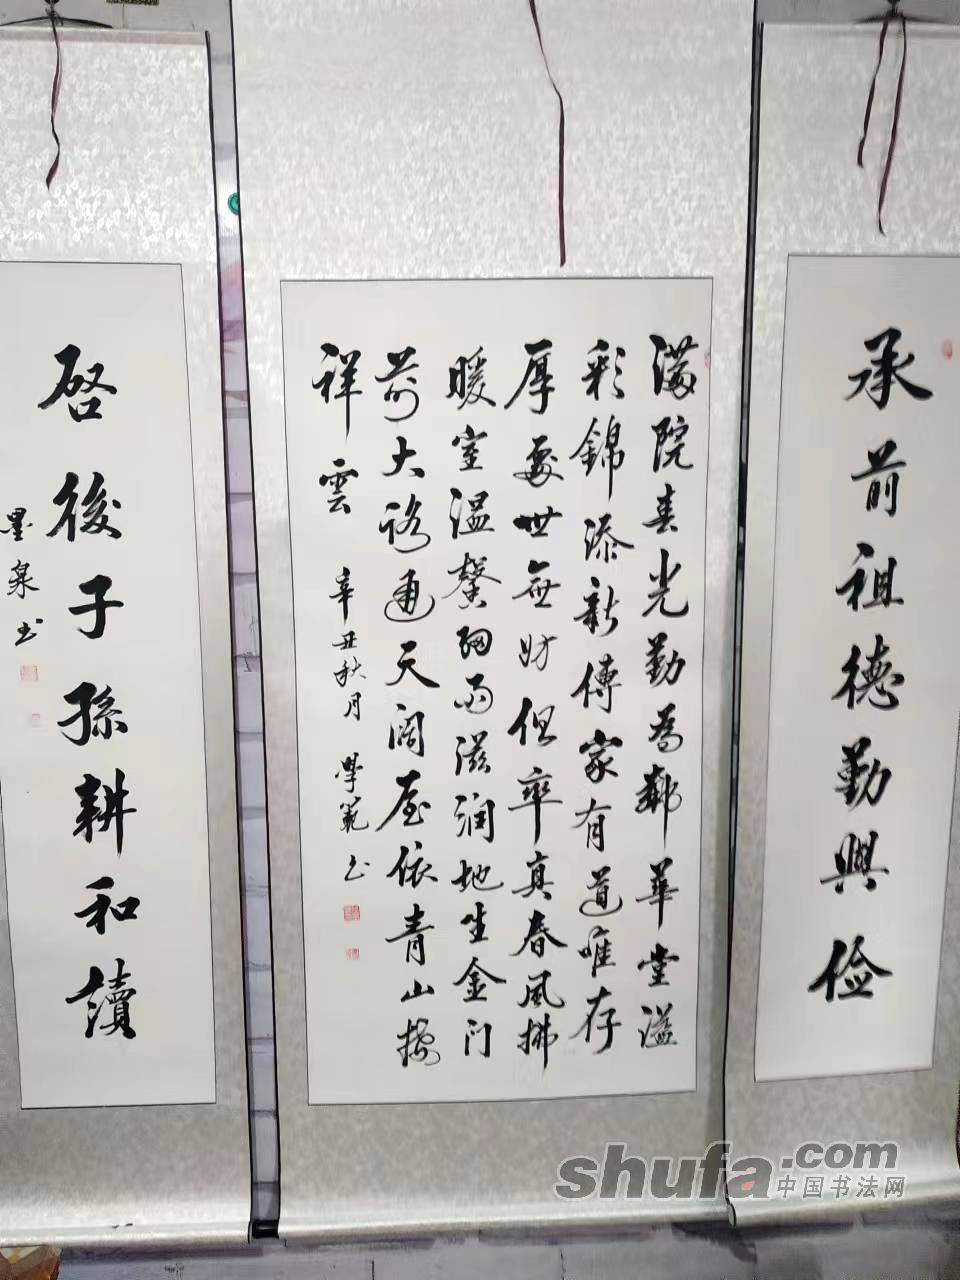 承前祖德勤與儉
滿院春光勤為鄰華堂溢
彩錦添新傳家有道唯存
厚處世無妨但率真春風拂
暖室温馨細雨滋润地生金门
前大路通天阔屋依青山
祥雲 辛丑秋月 學範书
啓後子孫耕和讀
墨泉书
shufa.com
中国书法网